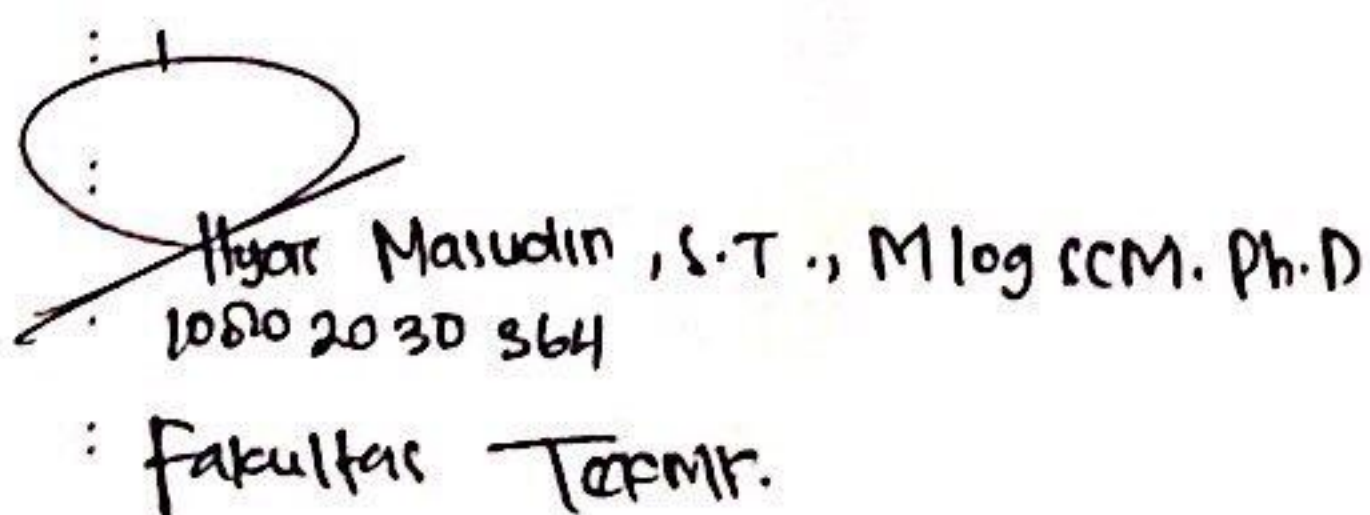 :
:
Ilyas Masudin, S.T., MlogSCM. Ph.D
: 10802030364
: Fakultas Teknik.